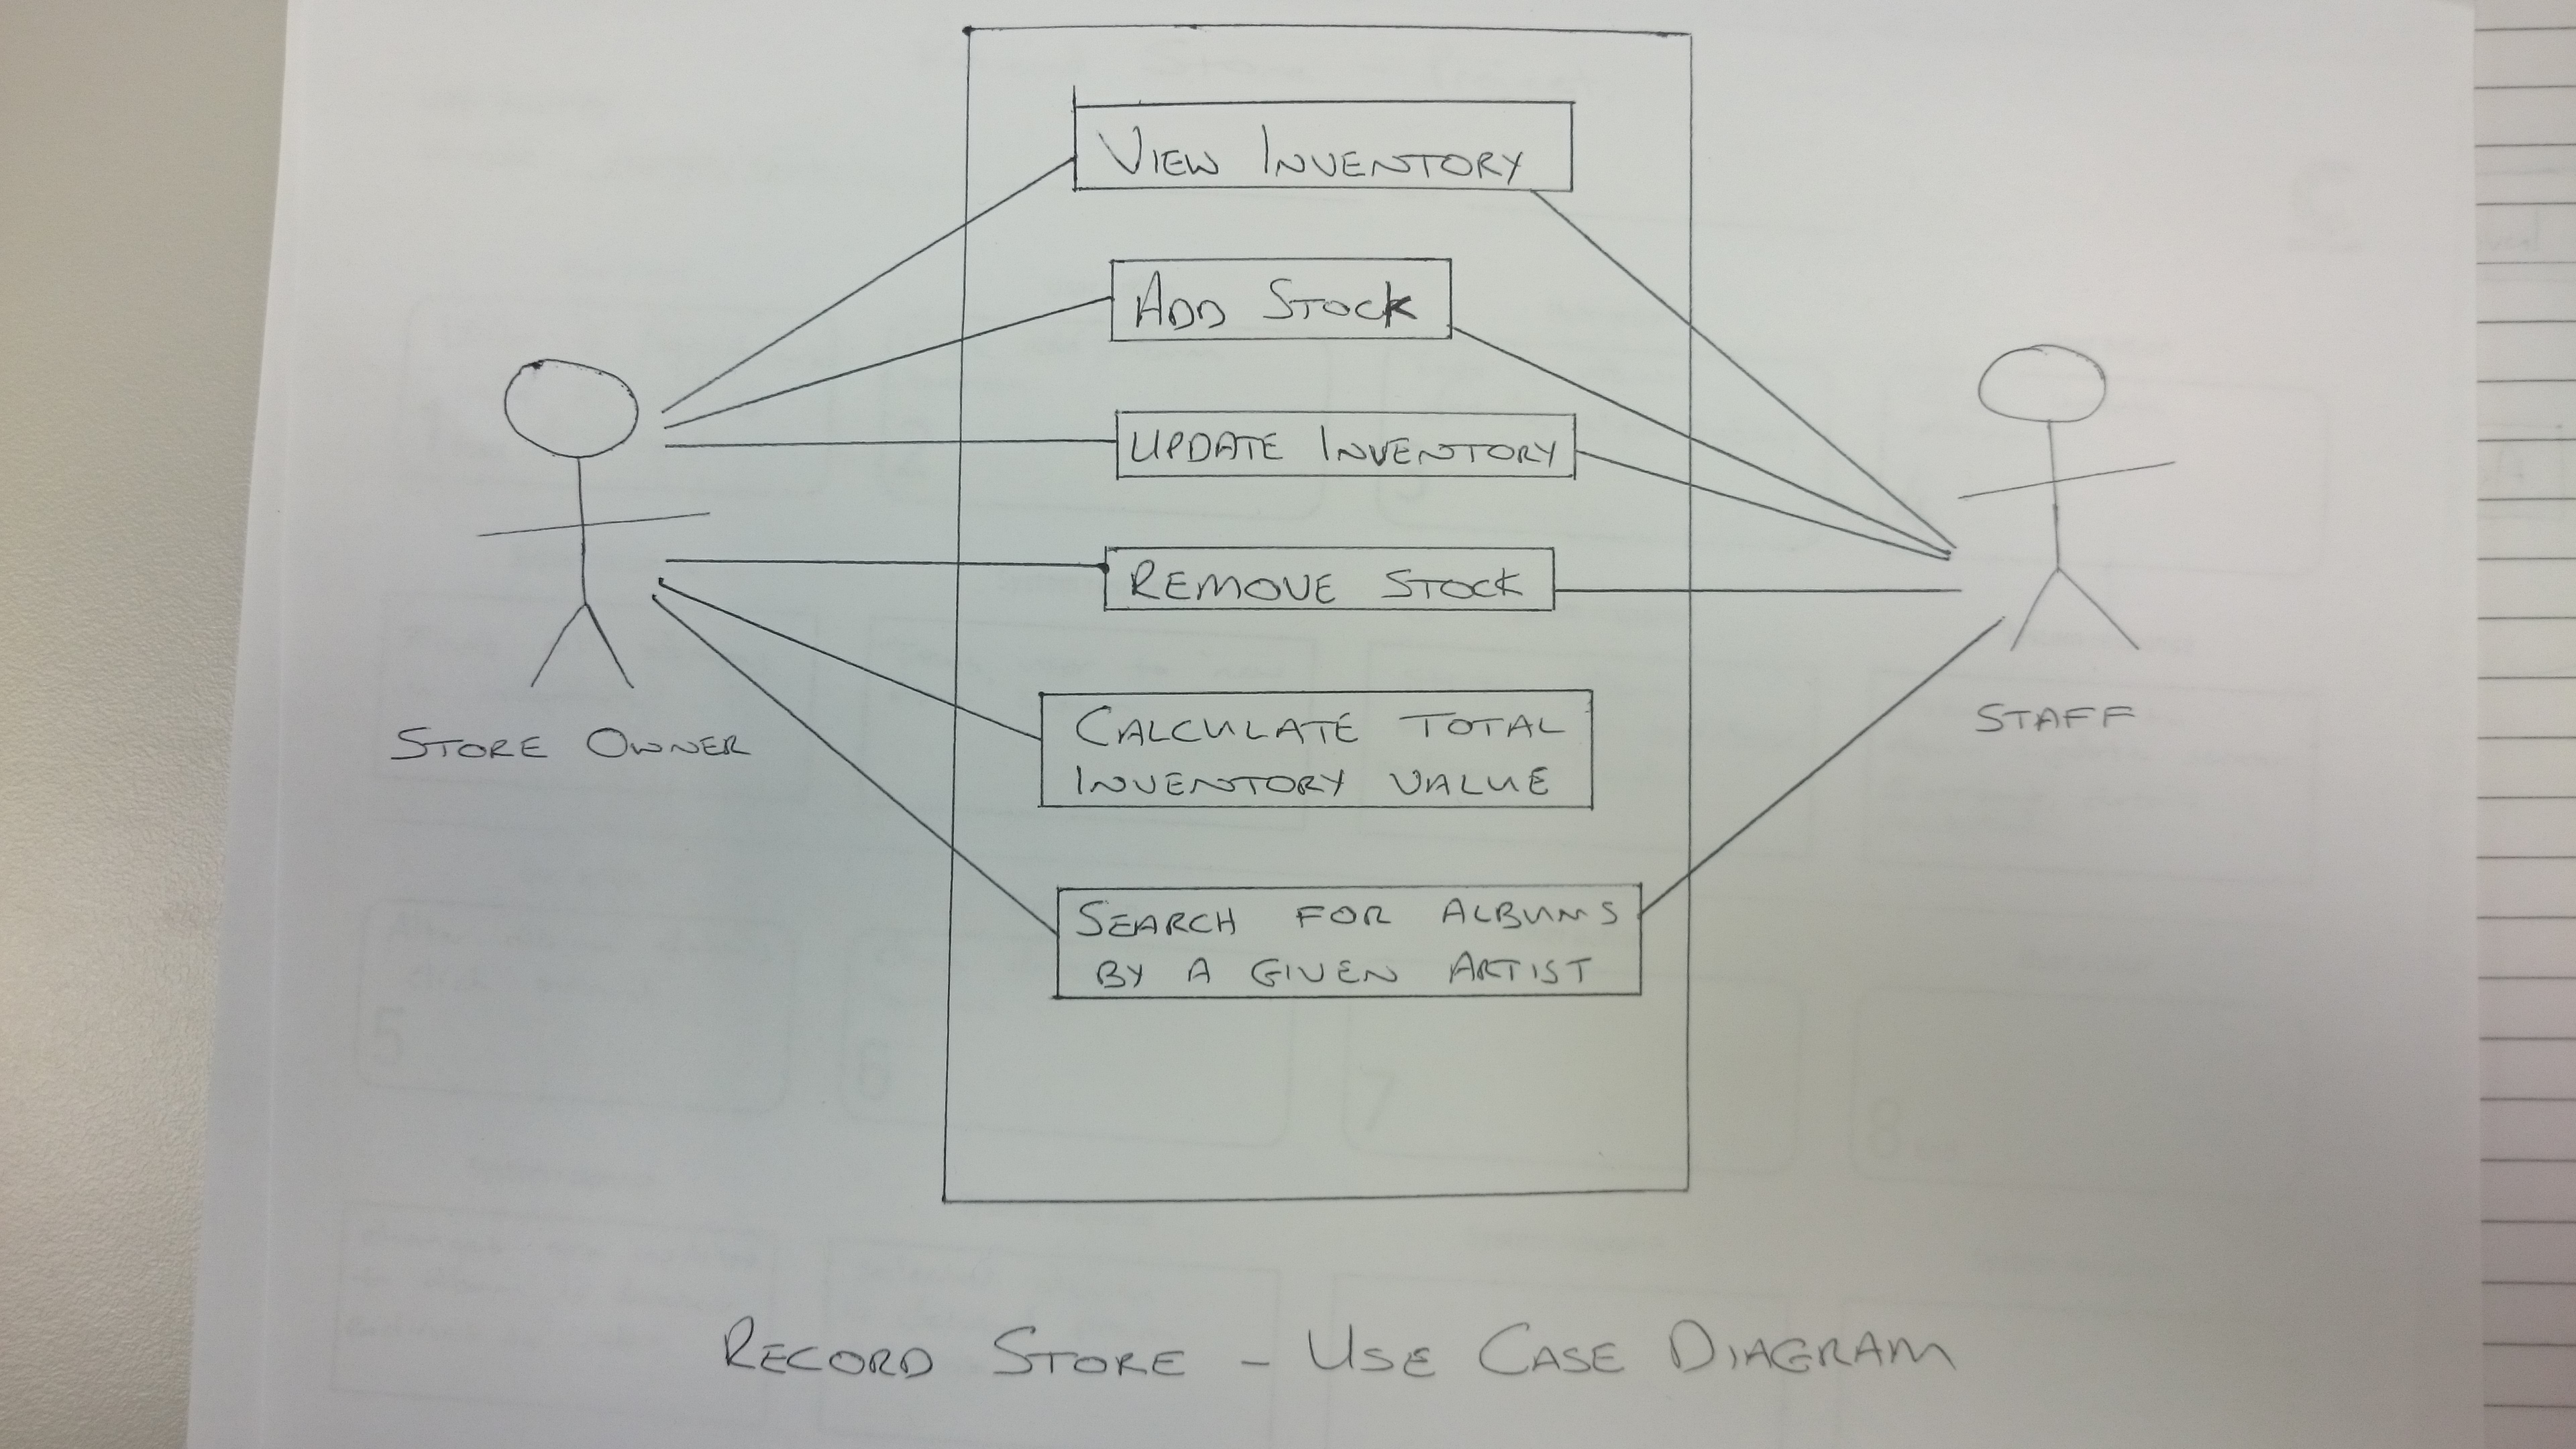 VIEW INVENTORY
ADD STOCK
UPDATE INVENTORY
REMOVE STOCK
CALCULATE TOTAL
INVENTORY VALUE
SEARCH FOR ALBUMS
BY A GIVEN ARTIST
STORE OWNER
STAFF
RECORD STORE - USE CASE DIAGRAM